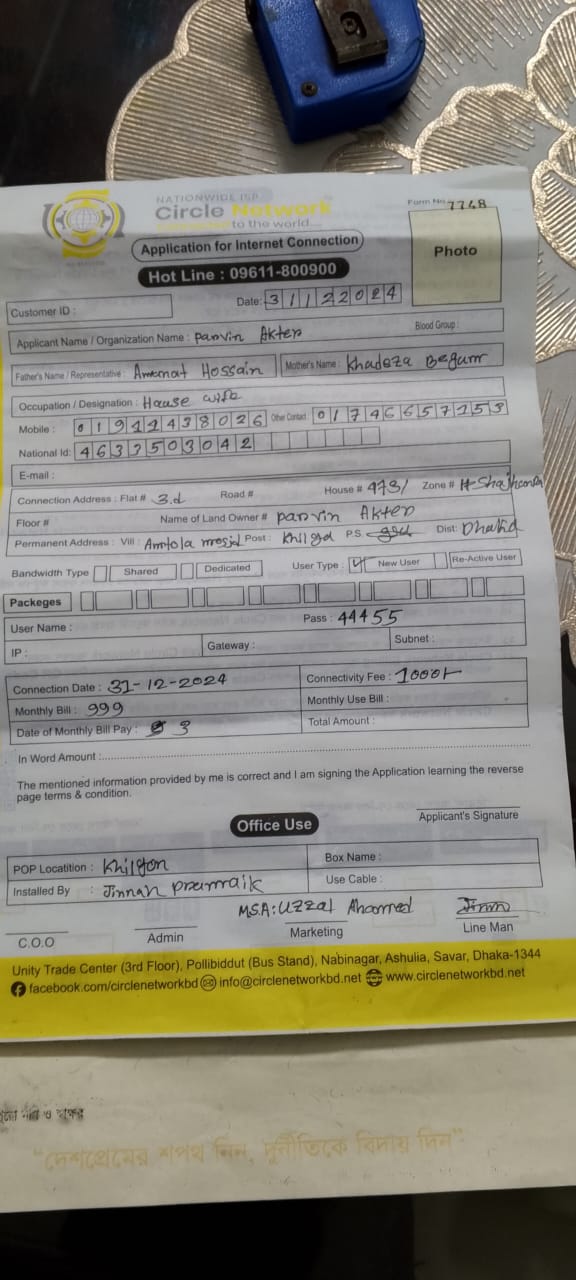 NATIONWIDE ISP
Circle Network
to the world....
Form No 7748
Application for Internet Connection
Photo
Hot Line : 09611-800900
Date: 31122024
Customer ID :
Applicant Name / Organization Name : Parvin Akter Blood Group :
Father's Name / Representative : Amanat Hossain Mother's Name : Khadeza Begum
Occupation / Designation : House wife
Mobile : 01911438026 Other Contact : 01746657153
National Id: 4637503042
E-mail :
Connection Address : Flat # 3.d Road # House # 473/ Zone #
Floor # Name of Land Owner # Parvin Akter
Permanent Address : Vill : Amtola Post : Khilga P.S Dist: Dhaka
Bandwidth Type Shared Dedicated User Type : New User Re-Active User
Packeges
User Name : Pass : 44455
IP : Gateway : Subnet :
Connection Date : 31-12-2024 Connectivity Fee : 1000/-
Monthly Bill : 999 Monthly Use Bill :
Date of Monthly Bill Pay : 3 Total Amount :
In Word Amount :
The mentioned information provided by me is correct and I am signing the Application learning the reverse
page terms & condition.
Applicant's Signature
Office Use
POP Locatition : Khilgon Box Name :
Installed By : Jinnah Pramaik Use Cable :
M.S.A: Uzzal Ahammed
C.O.O Admin Marketing Line Man
Unity Trade Center (3rd Floor), Pollibiddut (Bus Stand), Nabinagar, Ashulia, Savar, Dhaka-1344
facebook.com/circlenetworkbd info@circlenetworkbd.net www.circlenetworkbd.net
"দেশপ্রেমের শপথ নিন, দুর্নীতিকে বিদায় দিন"